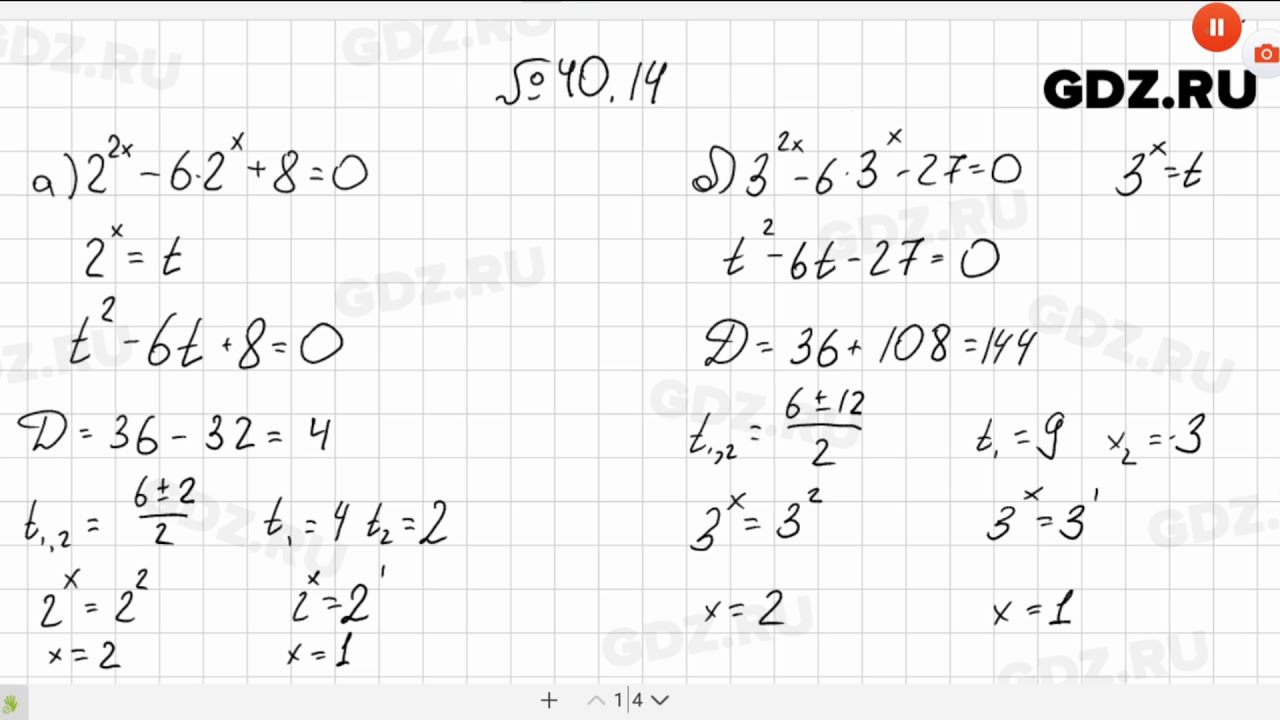 № 40.14
GDZ.RU
а) 2^{2x} - 6·2^x + 8 = 0
2^x = t
t^2 - 6t + 8 = 0
D = 36 - 32 = 4
t_{1,2} = \frac{6 ± 2}{2} t_1 = 4 t_2 = 2
2^x = 2^2 2^x = 2^1
x = 2 x = 1
б) 3^{2x} - 6·3^x - 27 = 0 3^x = t
t^2 - 6t - 27 = 0
D = 36 + 108 = 144
t_{1,2} = \frac{6 ± 12}{2} t_1 = 9 x_2 = -3
3^x = 3^2 3^x = 3^1
x = 2 x = 1
1|4